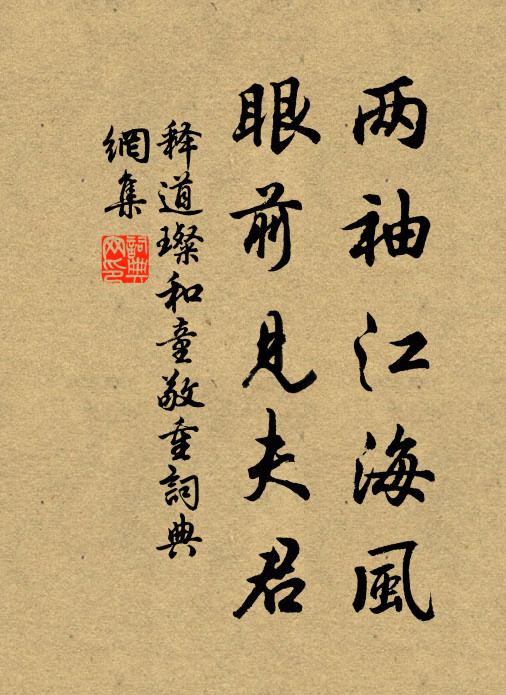 两袖江海風
眼前見夫君
释道璨和童敬重詞典
網集
詞典
网印